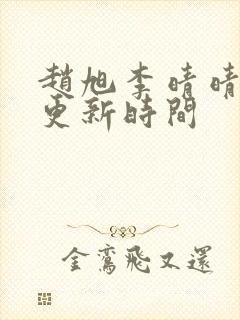 趙旭李晴晴
更新時間
金鸞飛又還